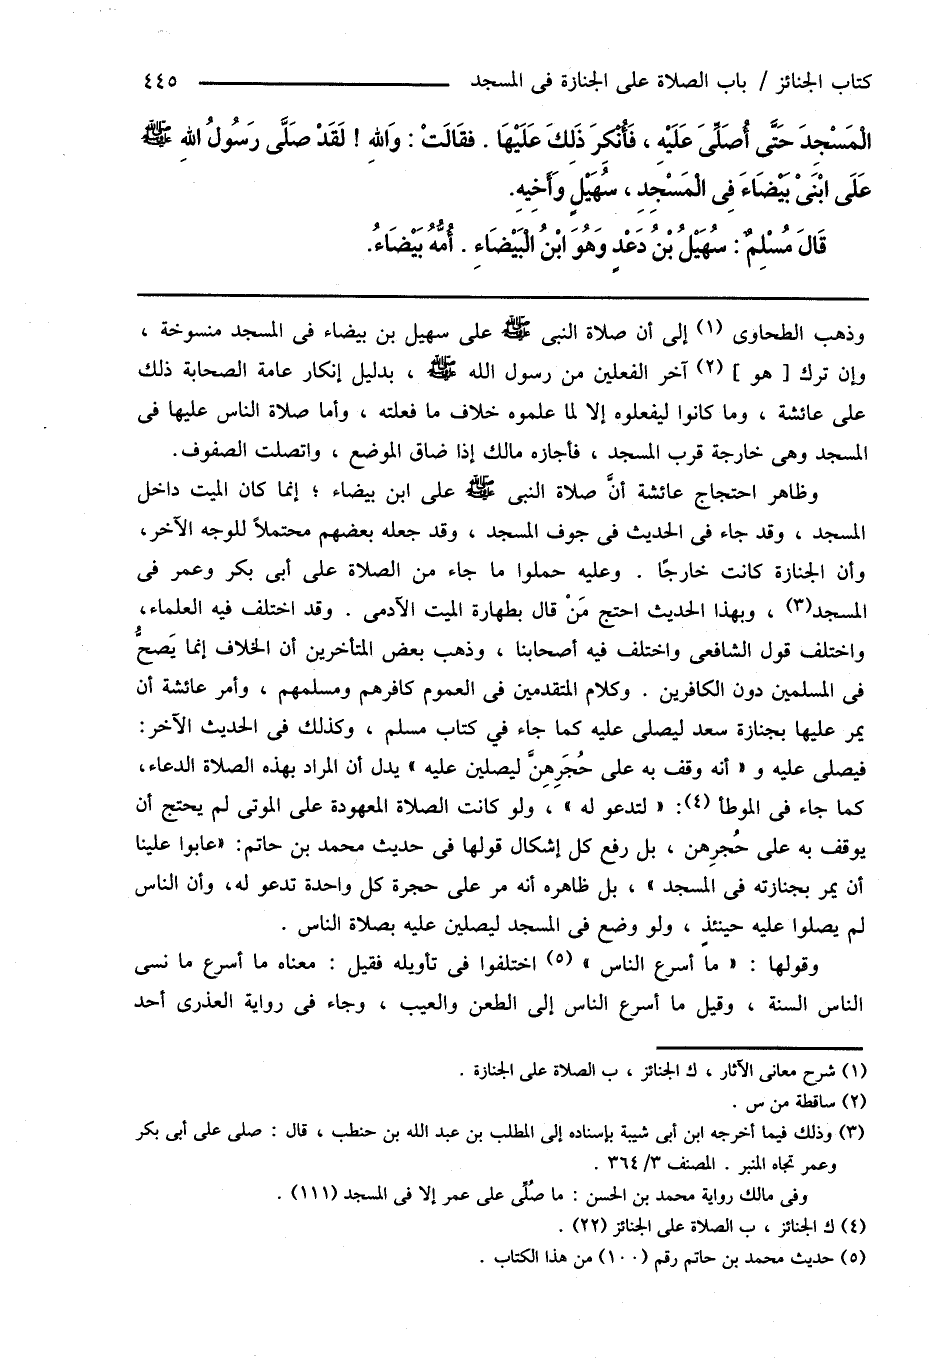 كتاب الجنائز / باب الصلاة على الجنازة فى المسجد ــــــ ٤٤٥
الْمَسْجِدَ حَتَّى أُصَلِّىَ عَلَيْهِ ، فَأُنْكِرَ ذَلِكَ عَلَيْهَا . فَقَالَتْ : وَاللهِ ! لَقَدْ صَلَّى رَسُولُ اللهِ ﷺ
عَلَى ابْنَىْ بَيْضَاءَ فِى الْمَسْجِدِ ، سُهَيْلٍ وَأَخِيهِ.
قَالَ مُسْلِمٌ : سُهَيْلُ بْنُ دَعْدٍ وَهُوَ ابْنُ الْبَيْضَاءِ . أُمُّهُ بَيْضَاءُ.
وذهب الطحاوى (١) إلى أن صلاة النبى ﷺ على سهيل بن بيضاء فى المسجد منسوخة ،
وإن ترك [ هو ] (٢) آخر الفعلين من رسول الله ﷺ ، بدليل إنكار عامة الصحابة ذلك
على عائشة ، وما كانوا ليفعلوه إلا لما علموه خلاف ما فعلته ، وأما صلاة الناس عليها فى
المسجد وهى خارجة قرب المسجد ، فأجازه مالك إذا ضاق الموضع ، واتصلت الصفوف.
وظاهر احتجاج عائشة أنَّ صلاة النبى ﷺ على ابن بيضاء ؛ إنما كان الميت داخل
المسجد ، وقد جاء فى الحديث فى جوف المسجد ، وقد جعله بعضهم محتملاً للوجه الآخر،
وأن الجنازة كانت خارجًا . وعليه حملوا ما جاء من الصلاة على أبى بكر وعمر فى
المسجد(٣) ، وبهذا الحديث احتج مَنْ قال بطهارة الميت الآدمى . وقد اختلف فيه العلماء،
واختلف قول الشافعى واختلف فيه أصحابنا ، وذهب بعض المتأخرين أن الخلاف إنما يَصحُّ
فى المسلمين دون الكافرين . وكلام المتقدمين فى العموم كافرهم ومسلمهم ، وأمر عائشة أن
يمر عليها بجنازة سعد ليصلى عليه كما جاء في كتاب مسلم ، وكذلك فى الحديث الآخر:
فيصلى عليه و « أنه وقف به على حُجَرِهنَّ ليصلين عليه » يدل أن المراد بهذه الصلاة الدعاء،
كما جاء فى الموطأ (٤): « لتدعو له » ، ولو كانت الصلاة المعهودة على الموتى لم يحتج أن
يوقف به على حُجرِهن ، بل رفع كل إشكال قولها فى حديث محمد بن حاتم: «عابوا علينا
أن يمر بجنازته فى المسجد » ، بل ظاهره أنه مر على حجرة كل واحدة تدعو له، وأن الناس
لم يصلوا عليه حينئذٍ ، ولو وضع فى المسجد ليصلين عليه بصلاة الناس .
وقولها : « ما أسرع الناس » (٥) اختلفوا فى تأويله فقيل : معناه ما أسرع ما نسى
الناس السنة ، وقيل ما أسرع الناس إلى الطعن والعيب ، وجاء فى رواية العذرى أحد
(١) شرح معانى الآثار ، ك الجنائز ، ب الصلاة على الجنازة .
(٢) ساقطة من س .
(٣) وذلك فيما أخرجه ابن أبى شيبة بإسناده إلى المطلب بن عبد الله بن حنطب ، قال : صلى على أبى بكر
وعمر تجاه المنبر . المصنف ٣/ ٣٦٤ .
وفى مالك رواية محمد بن الحسن : ما صُلِّى على عمر إلا فى المسجد (١١١) .
(٤) ك الجنائز ، ب الصلاة على الجنائز (٢٢) .
(٥) حديث محمد بن حاتم رقم (١٠٠) من هذا الكتاب .